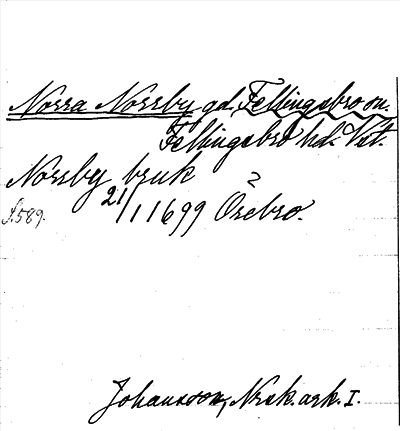 Norra Norrby gd. Fellingsbro sn.
Fellingsbro hd. Vstl.
Norrby bruk
S. 589. 21/1 1699 Örebro.
Johansson, Norsk. ark. I.